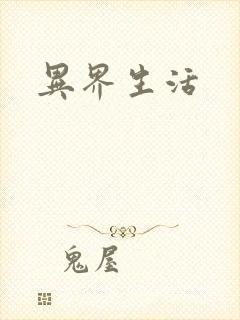 異界生活
鬼屋